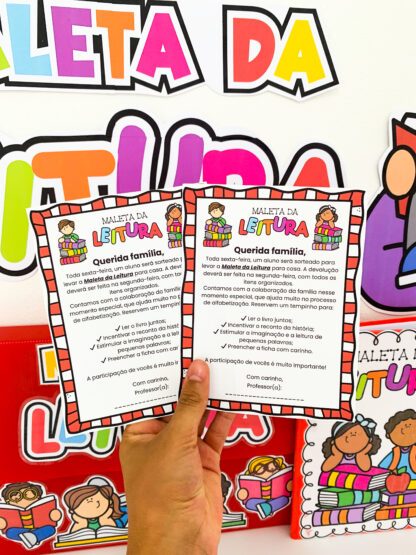 MALETA DA
LEITURA
MALETA DA
LEITURA
Querida família,
Toda sexta-feira, um aluno será sorteado para
levar a Maleta da Leitura para casa. A
deverá ser feita na segunda-feira,
itens organizados.
Contamos com a colaboração da
momento especial, que ajuda muito no
de alfabetização. Reservem um
✓ Ler o livro juntos;
✓ Incentivar o reconto da
✓ Estimular a imaginação e a
pequenas palavras;
✓ Preencher a ficha com
A participação de vocês é muito
Com carinho,
Professor(a):
MALETA DA
LEITURA
Querida família,
Toda sexta-feira, um aluno será sorteado para
levar a Maleta da Leitura para casa. A devolução
deverá ser feita na segunda-feira, com todos os
itens organizados.
Contamos com a colaboração da família nesse
momento especial, que ajuda muito no processo
de alfabetização. Reservem um tempinho para:
✓ Ler o livro juntos;
✓ Incentivar o reconto da história;
✓ Estimular a imaginação e a leitura de
pequenas palavras;
✓ Preencher a ficha com carinho.
A participação de vocês é muito importante!
Com carinho,
Professor(a):
MALETA DA
LEITURA